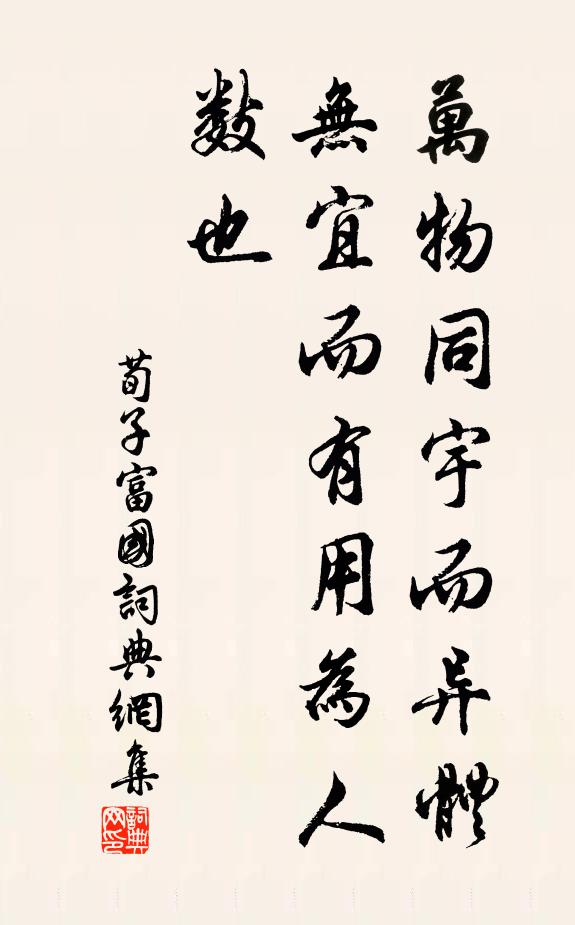 萬物同宇而异體
無宜而有用為人
數也
荀子富國詞典網集
詞典網印